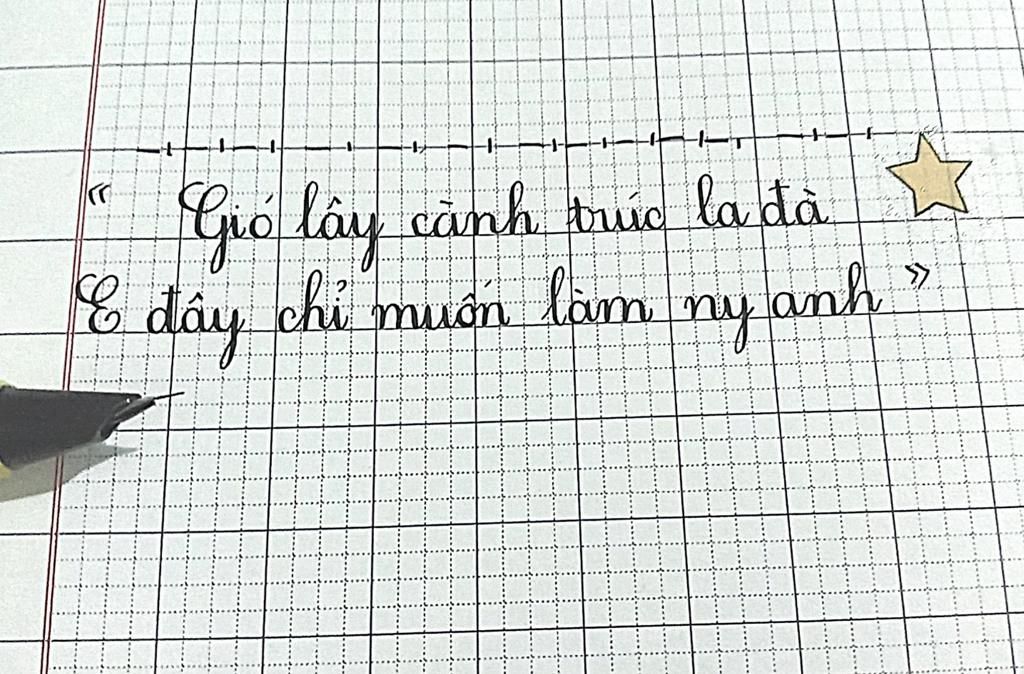 “ Gió lây cành trúc la đà
E đây chỉ muốn làm ny anh ”